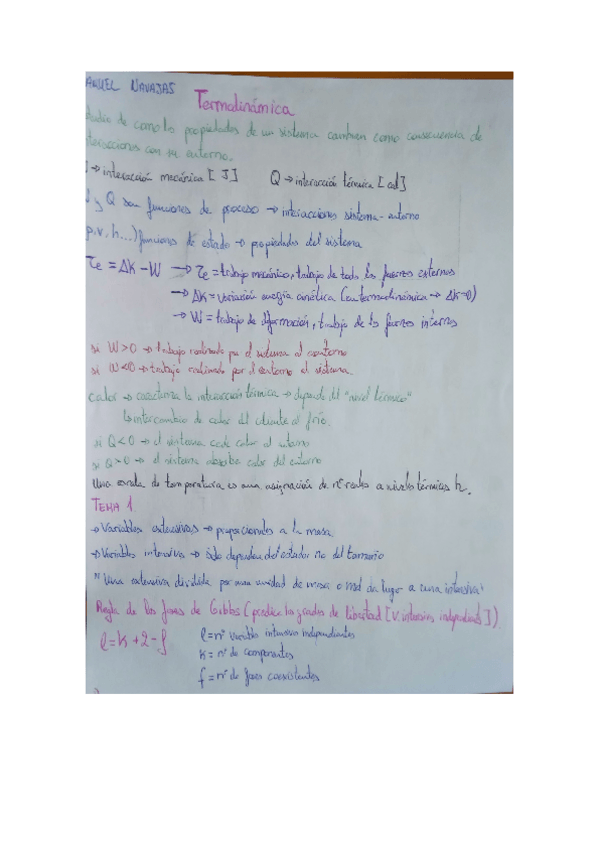 ANUEL NAVAJAS
Termodinámica
tudio de como las propiedades de un sistema cambian como consecuencia de
interacciones con su entorno.
→ interacción mecánica [J] Q → interacción térmica [cal]
y Q son funciones de proceso → interacciones sistema-entorno
p, v, h...) funciones de estado → propiedades del sistema
τe = ΔK - W → τe = trabajo mecánico, trabajo de todas las fuerzas externas
→ ΔK = variación energía cinética (en termodinámica → ΔK=0)
→ W = trabajo de deformación, trabajo de las fuerzas internas
si W>0 → trabajo realizado por el sistema al entorno
si W<0 → trabajo realizado por el entorno al sistema.
calor → caracteriza la interacción térmica → depende del "nivel térmico"
↳ intercambio de calor del caliente al frío.
si Q<0 → el sistema cede calor al entorno
si Q>0 → el sistema absorbe calor del entorno
Una escala de temperatura es una asignación de nº reales a niveles térmicos h.
TEMA 1.
→ Variables extensivas → proporcionales a la masa.
→ Variables intensivas → sólo dependen del estado y no del tamaño
"Una extensiva dividida por una unidad de masa o mol da lugar a una intensiva"
Regla de las fases de Gibbs (predice los grados de libertad [V. intensivas independients]).
l = K + 2 - f l = nº variables intensivas independientes
K = nº de componentes
f = nº de fases coexistentes